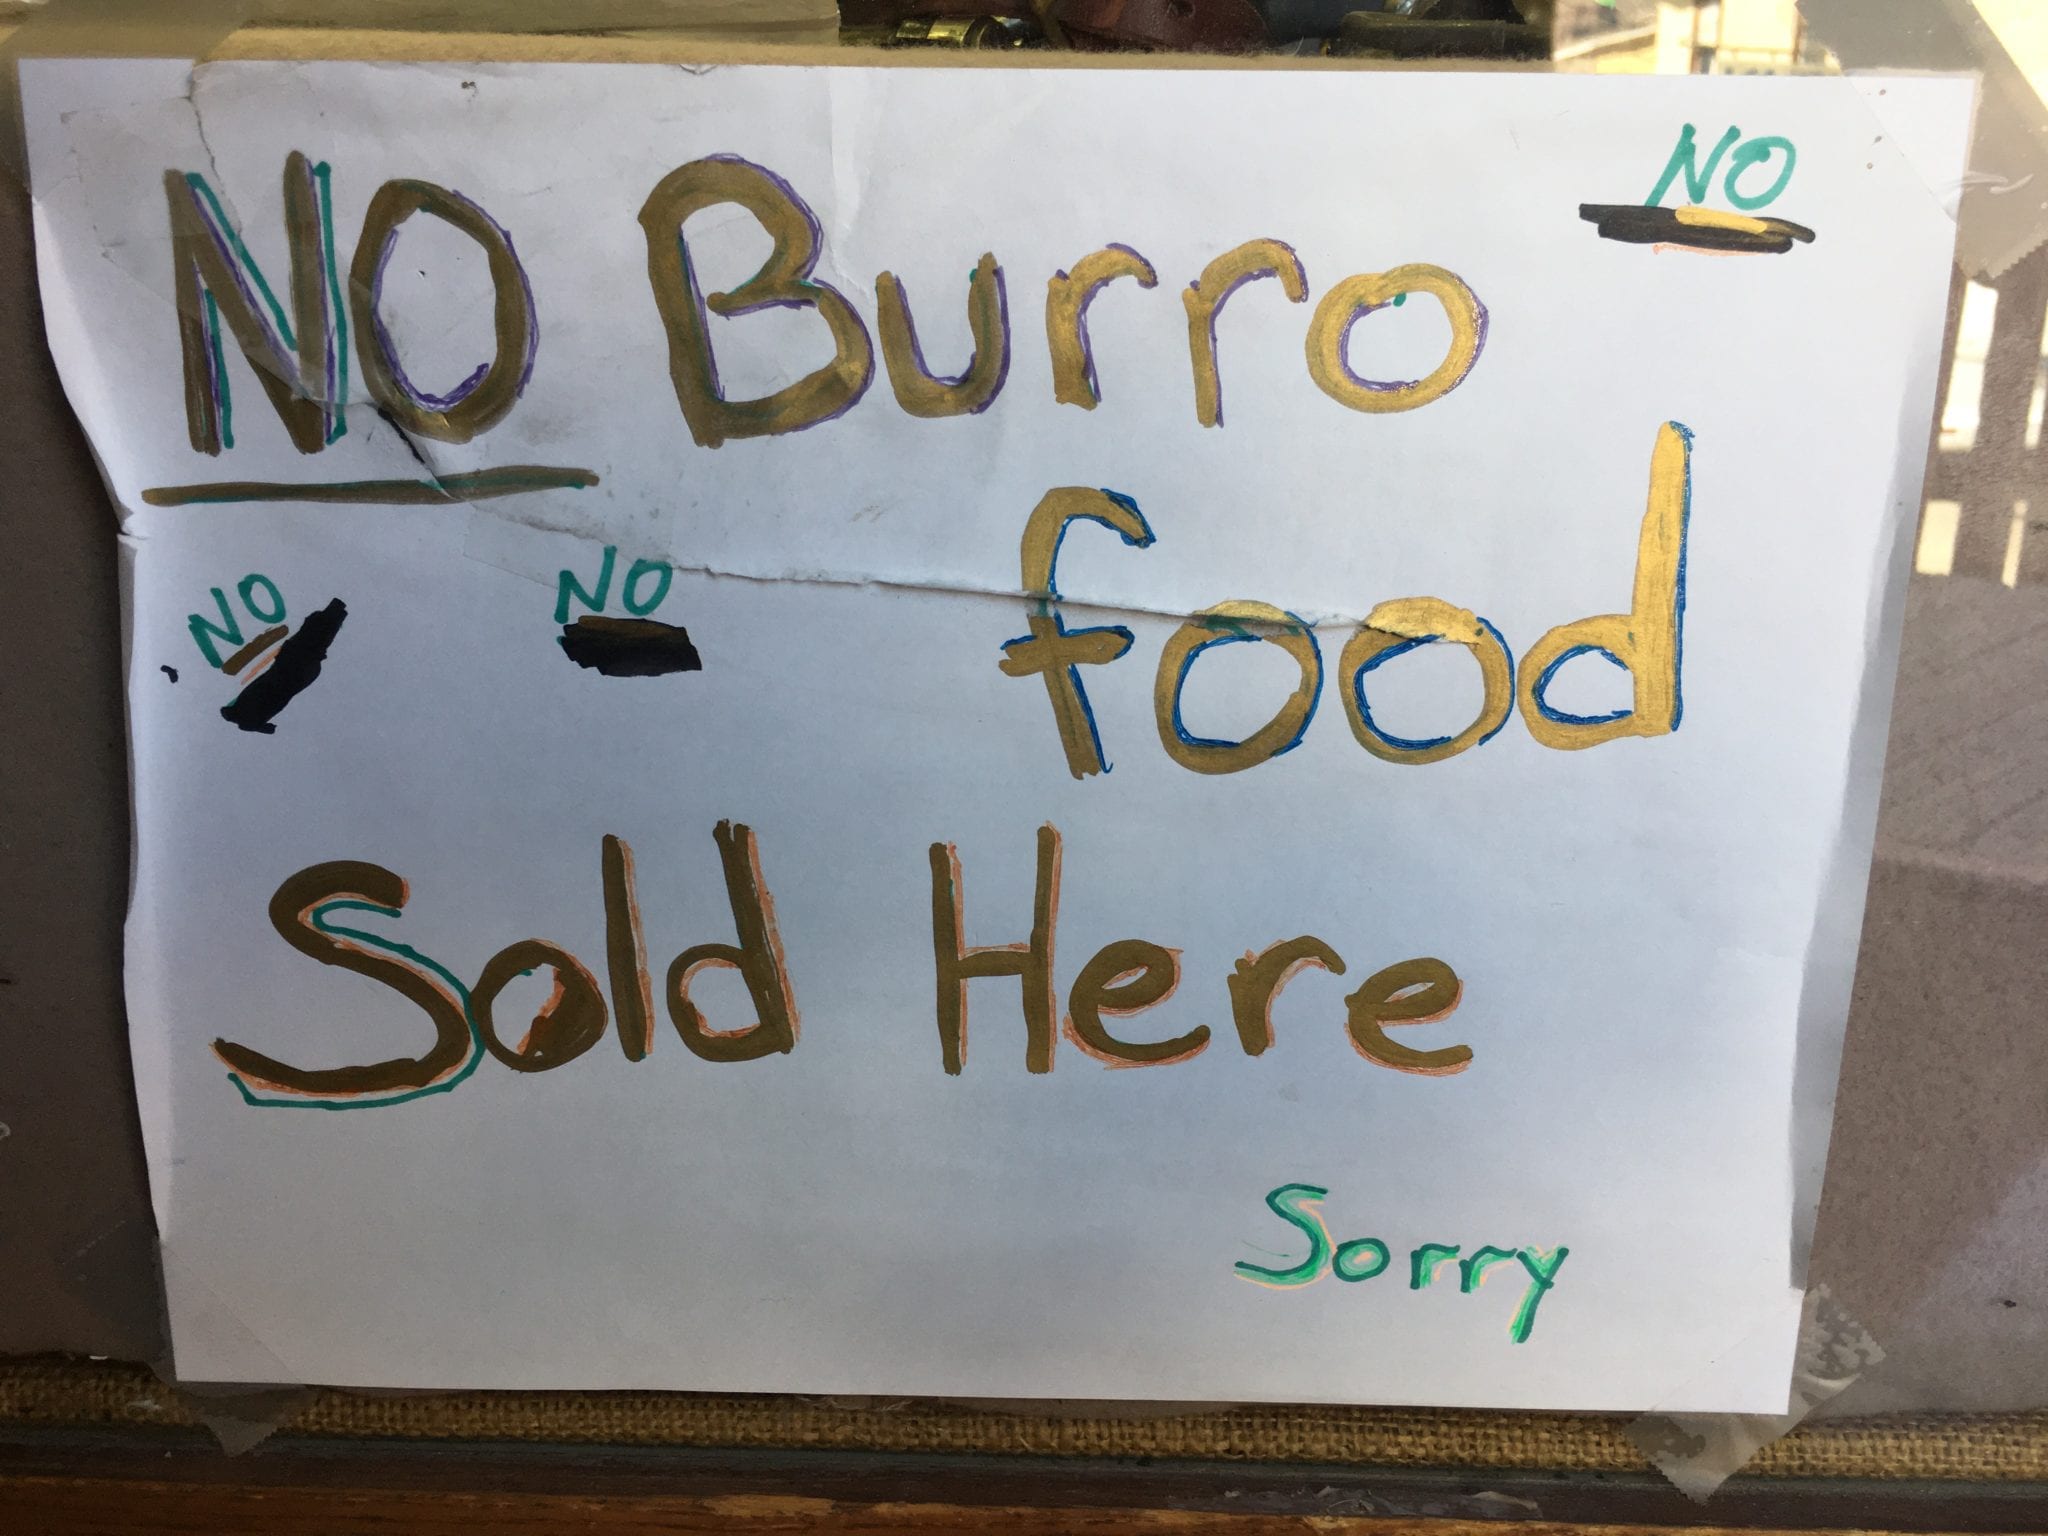 NO
NO Burro
food
NO NO
Sold Here
Sorry